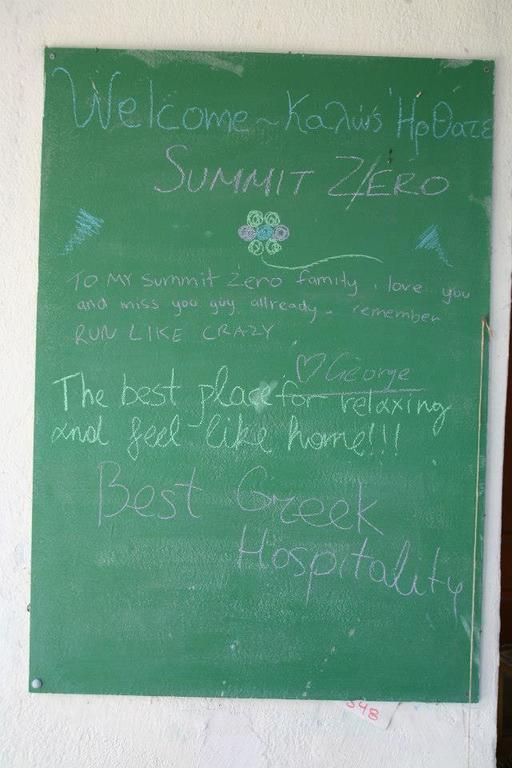 Welcome ~ Καλώς Ήρθατε
SUMMIT ZERO
To my summit Zero family, love you
and miss you guy allready. remember
RUN LIKE CRAZY
♡ George
The best place for relaxing
and feel like home!!!
Best Greek
Hospitality
548